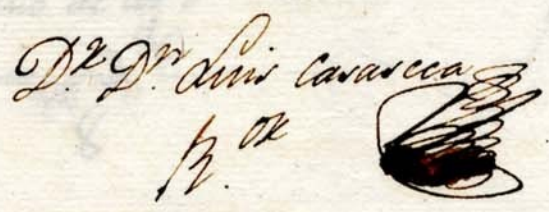 D.r D.n Luis Casaseca